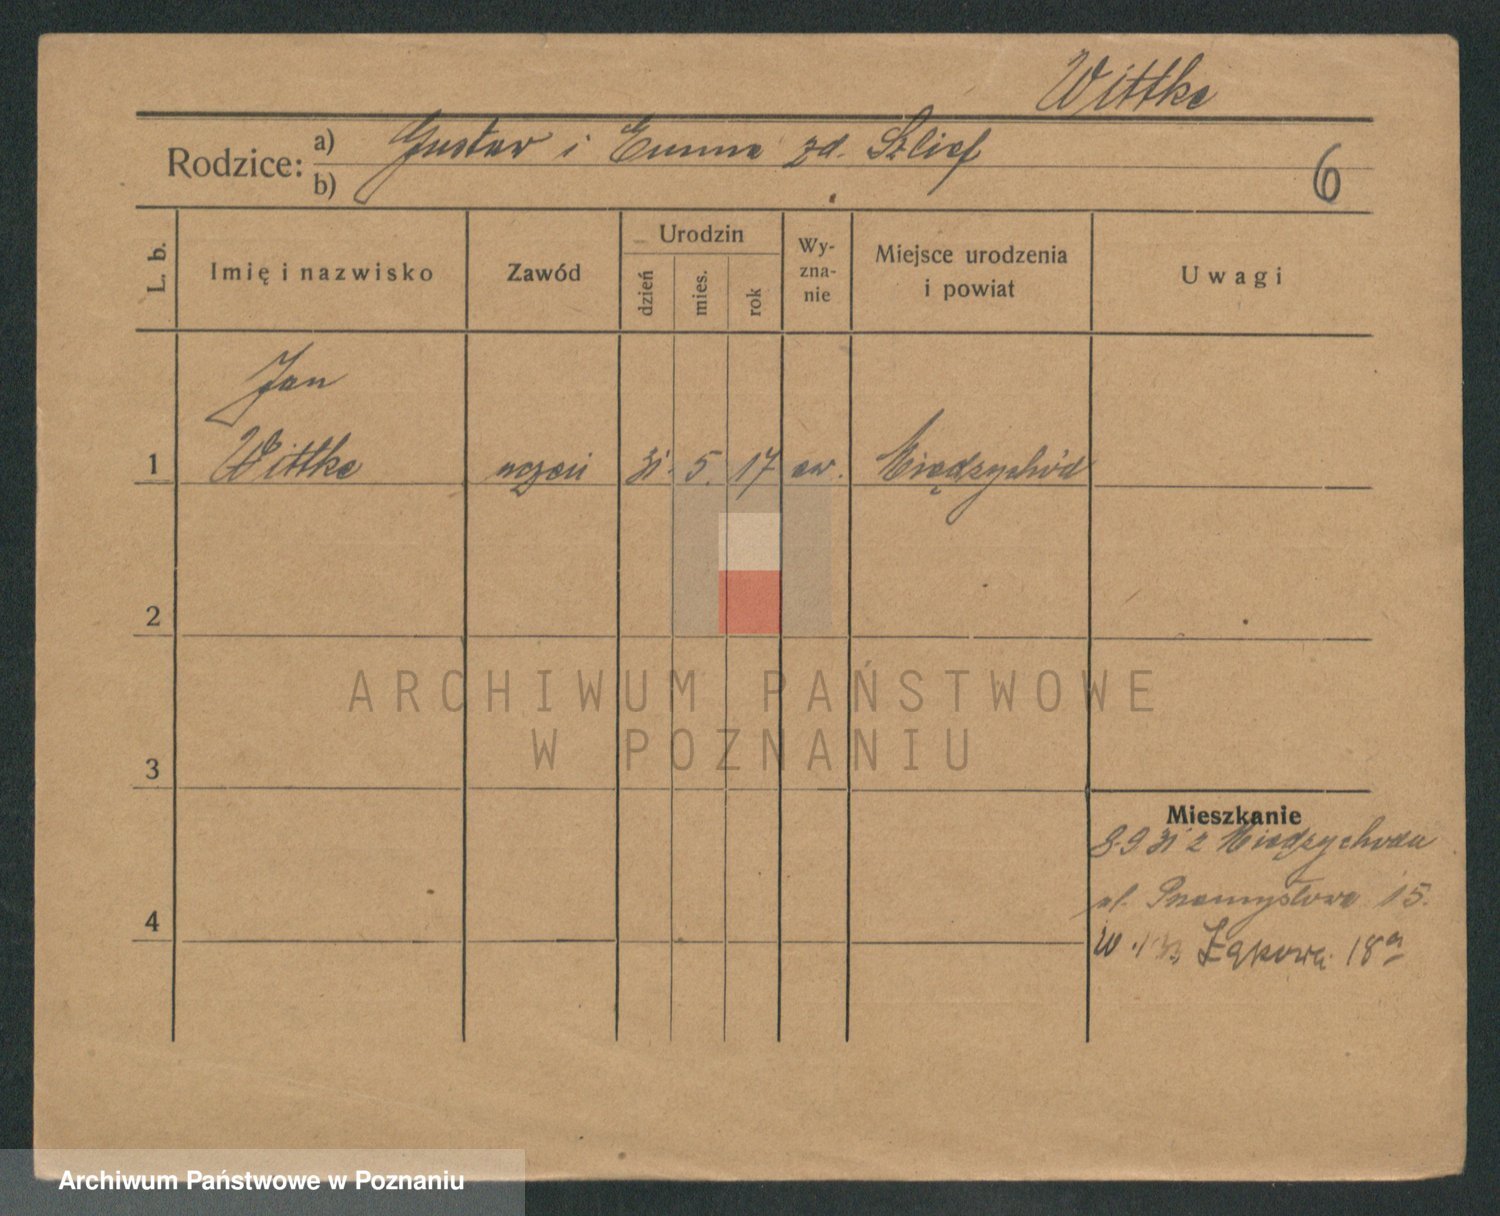 Wittke
Rodzice: a) Gustaw i Emma zd. Szlief
b)
6
L. b.
Imię i nazwisko
Zawód
Urodzin
dzień
mies.
rok
Wy-
zna-
nie
Miejsce urodzenia
i powiat
Uwagi
Jan
1 Wittke uczeń 31. 5. 17 ew. Międzychód
2
3
4
Mieszkanie
8.9 31 z Międzychodu
ul. Przemysłowa 15.
Łąkowa 18a
ARCHIWUM PAŃSTWOWE
W POZNANIU
Archiwum Państwowe w Poznaniu